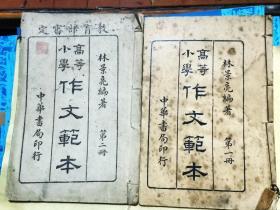 教育部審定
林景亮編著
高等小學
作文範本
第二冊
中華書局印行
林景亮編著
高等小學
作文範本
第一冊
中華書局印行